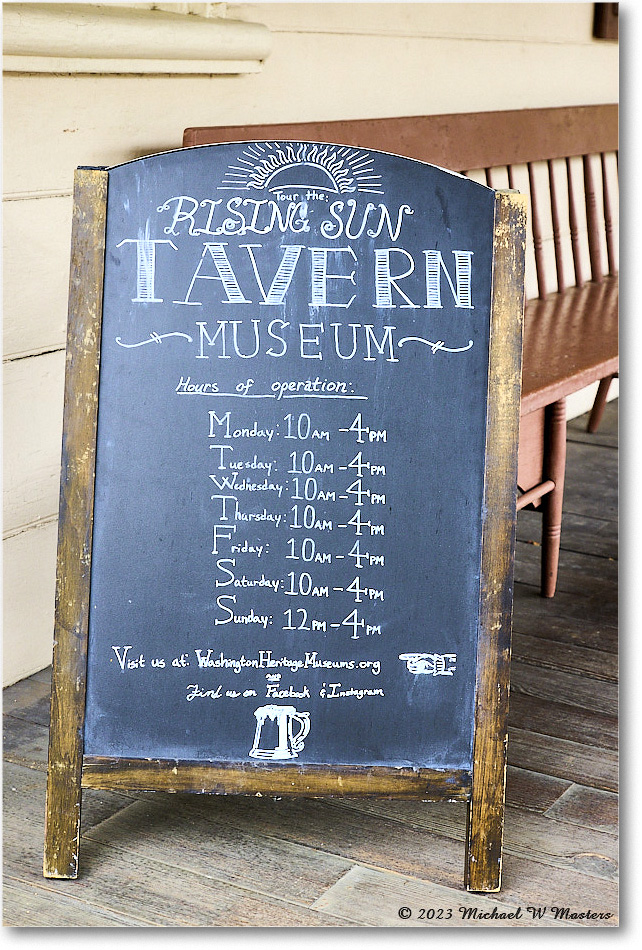 Tour the:
RISING SUN
TAVERN
MUSEUM
Hours of operation:
Monday: 10AM - 4PM
Tuesday: 10AM - 4PM
Wednesday: 10AM - 4PM
Thursday: 10AM - 4PM
Friday: 10AM - 4PM
Saturday: 10AM - 4PM
Sunday: 12PM - 4PM
Visit us at: WashingtonHeritageMuseums.org
Find us on Facebook & Instagram
© 2023 Michael W Masters